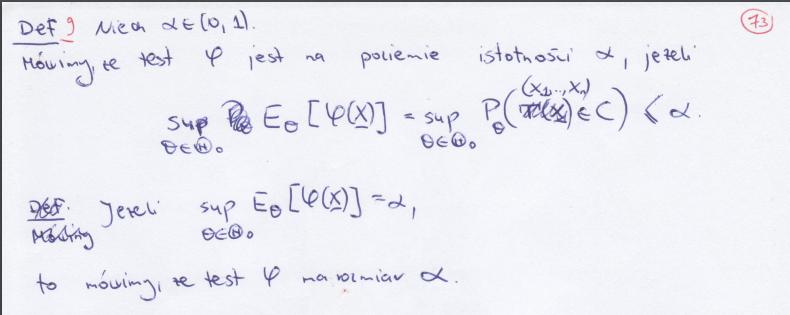 Def 9 Niech α∈(0,1). 73
Mówimy, że test φ jest na poziomie istotności α, jeżeli
sup_{θ∈Θ₀} E_θ[φ(X)] = sup_{θ∈Θ₀} P_θ((X₁,...,Xₙ)∈C) ≤ α.
Jeżeli sup_{θ∈Θ₀} E_θ[φ(X)] = α,
to mówimy, że test φ ma rozmiar α.